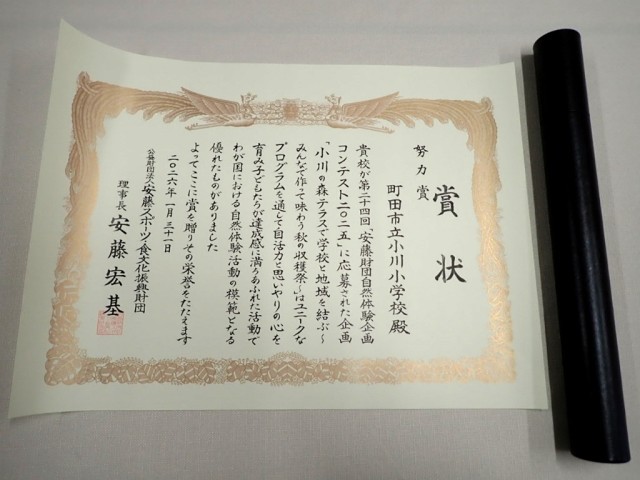 賞状
努力賞
町田市立小川小学校殿
貴校が第二十四回「安藤財団自然体験企画
コンテスト二〇二五」に応募された企画
「小川の森テラスで学校と地域を結ぶ〜
みんなで作って味わう秋の収穫祭〜」はユニークな
プログラムを通して自活力と思いやりの心を
育み子どもたちが達成感に満りあふれた活動で
わが国における自然体験活動の模範となる
優れたものがありました
よってここに賞を贈りその栄誉をたたえます
二〇二六年一月三十一日
公益財団法人安藤スポーツ・食文化振興財団
理事長 安藤宏基